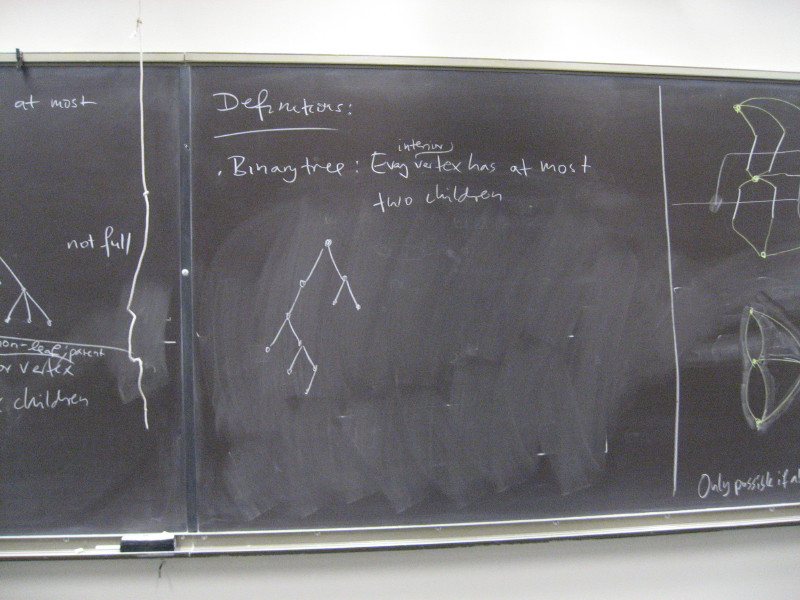 at most
not full
non-leaf, parent
or vertex
children
Definitions:
. Binary tree: Every vertex has at most
interior
two children
Only possible if al